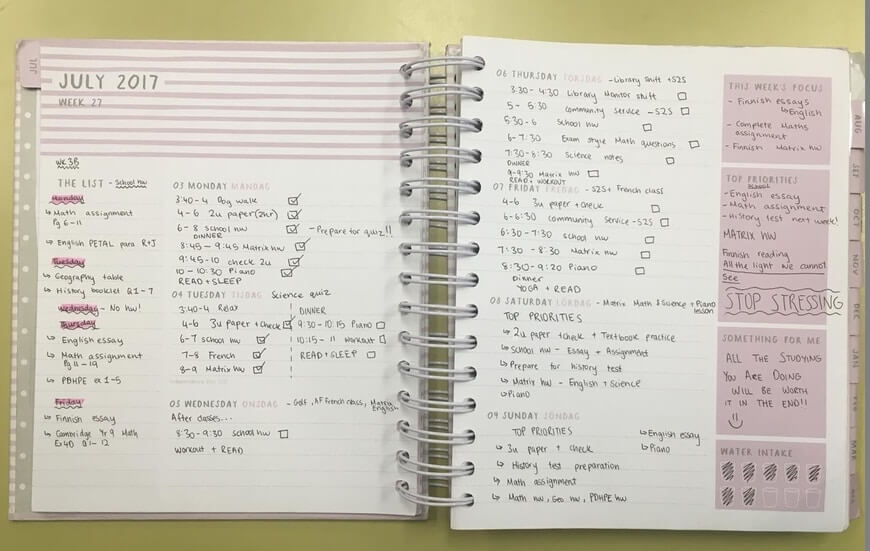 JUL
JULY 2017
WEEK 27
WK 3B
THE LIST - School hw
Monday
↳ Math assignment
Pg 6-11
↳ English PETAL para R+J
Tuesday
↳ Geography table
↳ History booklet Q1-7
Wednesday - No hw!
Thursday
↳ English essay
↳ Math assignment
Pg 11-19
↳ PDHPE ex 1-5
Friday
↳ Finnish essay
↳ Cambridge Yr 9 Math
Ex4D Q1-12
03 MONDAY MANDAG
3:40-4 Dog walk
4-6 2u paper (2hr)
6-8 School hw - Prepare for quiz!!
DINNER
8:45-9:45 Matrix hw
9:45-10 check 2u
10-10:30 Piano
READ + SLEEP
04 TUESDAY TIJDAG Science quiz
3:40-4 Relax
4-6 3u paper + check
6-7 school hw
7-8 French
8-9 Matrix hw
DINNER
9:30-10:15 Piano
10:15-11 Workout
READ + SLEEP
05 WEDNESDAY ONSDAG - Golf, AF French class, Matrix English
After classes...
8:30-9:30 School hw
Workout + READ
06 THURSDAY TORSDAG - Library Shift + S2S
3:30-4:30 Library Monitor shift
5-5:30 Community Service - S2S
5:30-6 School hw
6-7:30 Exam style Math questions
7:30-8:30 Science notes
DINNER
9-9:30 Matrix hw
READ + WORKOUT
07 FRIDAY FREDAG - S2S + French class
4-6 3u paper + check
6-6:30 Community Service - S2S
6:30-7:30 School hw
7:30-8:30 Matrix hw
8:30-9:20 Piano
Dinner
YOGA + READ
08 SATURDAY LÖRDAG - Matrix Math & Science + Piano lesson
TOP PRIORITIES
↳ 2u paper + check + Textbook practice
↳ School hw - Essay + Assignment
↳ Prepare for history test
↳ Matrix hw - English + Science
↳ Piano
09 SUNDAY SÖNDAG
TOP PRIORITIES
↳ 3u paper + check
↳ History test preparation
↳ Math assignment
↳ Math hw, Geo hw, PDHPE hw
↳ English essay
↳ Piano
THIS WEEK'S FOCUS
- Finnish essays
↳ English
- Complete Maths
assignment
- Finnish Matrix hw
TOP PRIORITIES
School
- English essay
- Math assignment
- History test next week!
MATRIX HW
Finnish reading
All the light we cannot
See
STOP STRESSING
SOMETHING FOR ME
ALL THE STUDYING
YOU ARE DOING
WILL BE WORTH
IT IN THE END!!
WATER INTAKE
AUG
SEP
OCT
NOV
DEC
JAN
FEB
MAR